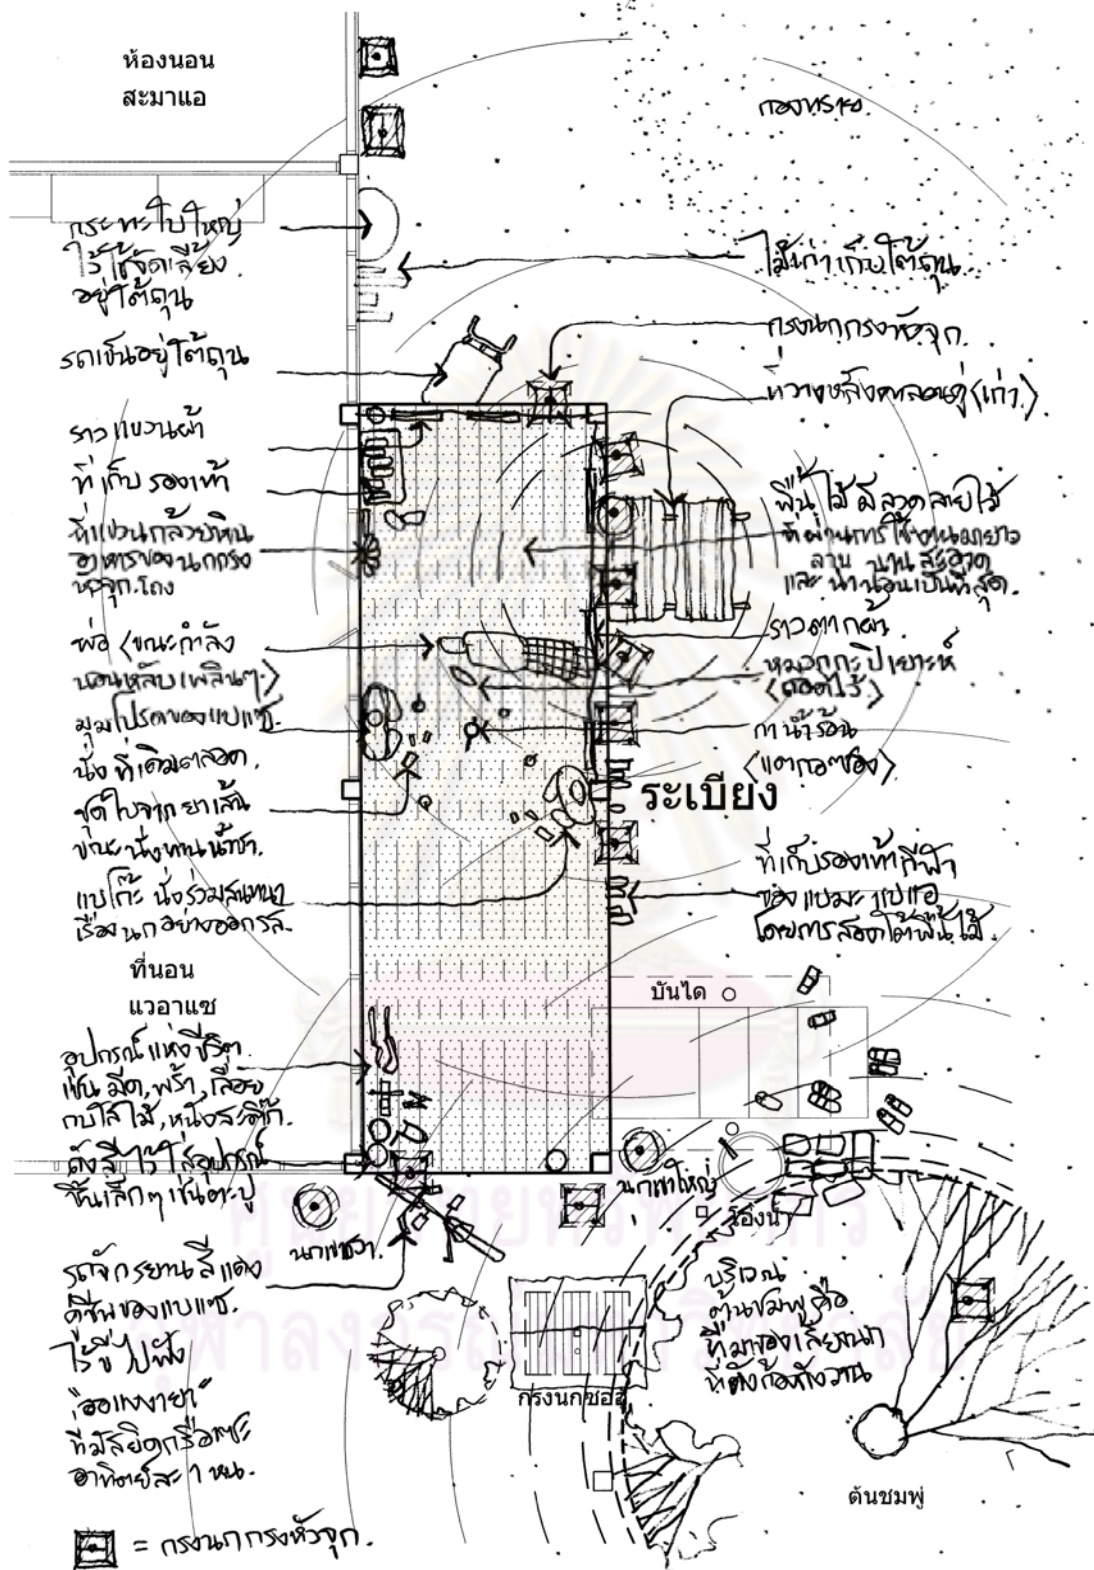 ห้องนอน
สะมาแอ
กองทราย
กระทะใบใหญ่
ไว้ใช้จัดเลี้ยง
อยู่ใต้ถุน
รถเข็นอยู่ใต้ถุน
ราวแขวนผ้า
ที่เก็บรองเท้า
ที่แขวนกล้วยหิน
อาหารของนกกรง
หัวจุก.
พ่อ (ขณะกำลัง
นอนหลับเพลินๆ)
มุมโปรดของแบแซ.
นั่งที่เดิมตลอด.
ชุดใบจากยาเส้น
ขณะนั่งทานน้ำชา.
แบโก๊ะ นั่งร่วมสนทนา
เรื่องนกอย่างออกรส.
ที่นอน
แวอาแซ
อุปกรณ์แห่งชีวิต
เช่น มีด, พร้า, เลื่อย
กบไสไม้, หนังสะติ๊ก.
ถังสีไว้ใส่อุปกรณ์
ชิ้นเล็กๆ เช่นตะปู
รถจักรยานสีแดง
คู่ชีพของแบแซ.
ไว้ขี่ไปฟัง
ที่มัสยิดกรือเซะ
อาทิตย์ละ 1 หน.
ไม้เก่าเก็บใต้ถุน
กรงนกกรงหัวจุก.
ที่วางหลังคา (เก่า)
พื้นไม้มีลวดลายไม้
ที่ผ่านการใช้งานมายาว
นาน สะอาด
และน่านอนเป็นที่สุด.
ราวตากผ้า
หมวกกะปิเยาะห์
(ถอดไว้)
กาน้ำร้อน
ระเบียง
ที่เก็บรองเท้ากีฬา
ของแบมะ แบแอ
โดยการสอดใต้พื้นไม้.
บันได
นกเขาใหญ่
โอ่งน้ำ
นกเขาชวา.
กรงนกซอฮู
บริเวณ
ต้นชมพู่คือ
ที่มาของเสียงนก
ที่ดังก้องกังวาน
ต้นชมพู่
= กรงนกกรงหัวจุก.
ศูนย์วิทยทรัพยากร
จุฬาลงกรณ์มหาวิทยาลัย